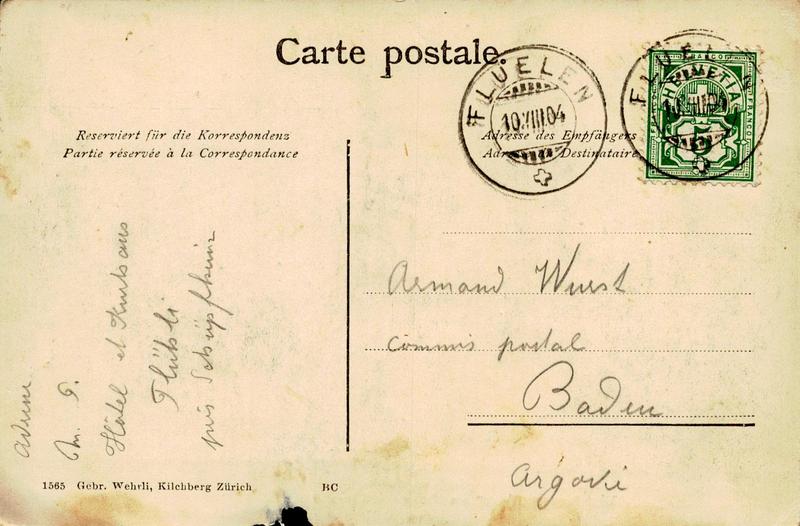 Carte postale.
FLUELEN
10.VIII.04
FLUELEN
10.VIII.04
HELVETIA
FRANCO
5
Reserviert für die Korrespondenz
Partie réservée à la Correspondance
Adresse des Empfängers
Destinataire
Armand Wurst
commis postal
Baden
Argovie
Hôtel et Kurhaus
Flühli
près Schüpfheim
1565 Gebr. Wehrli, Kilchberg Zürich BC